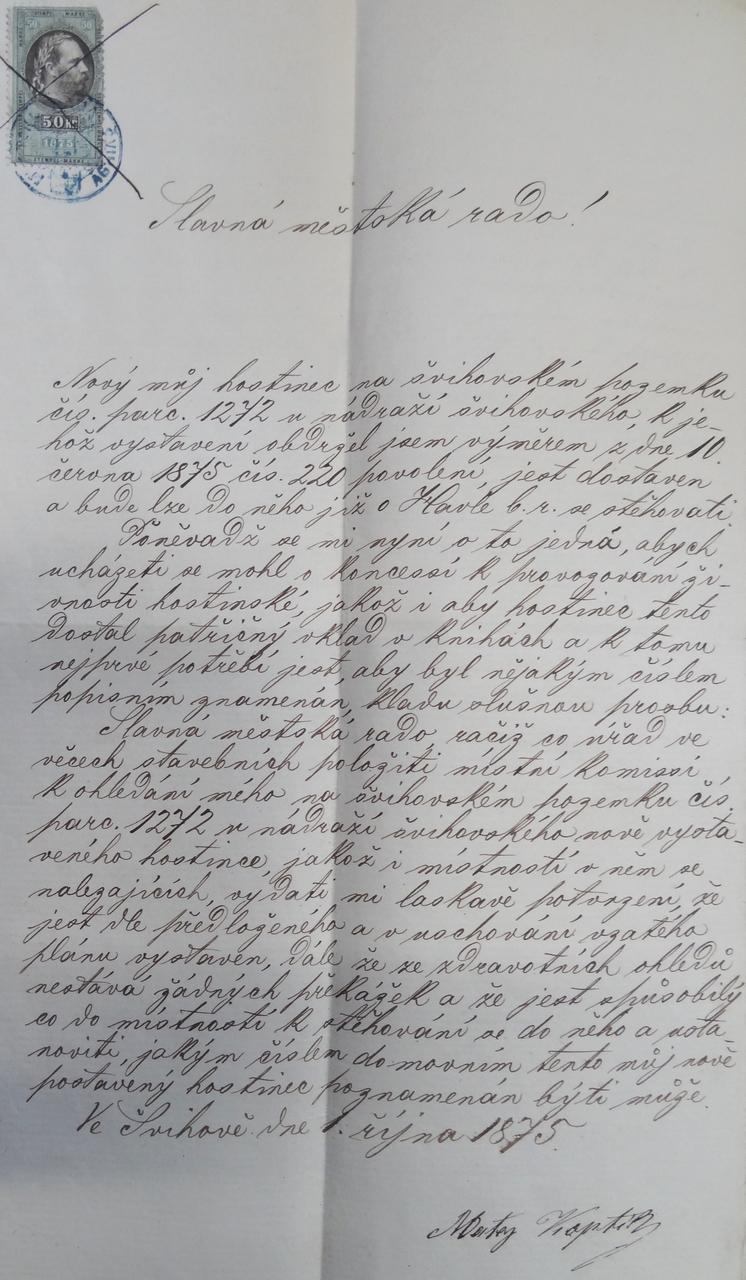 50 Kr.
1875
STEMPEL-MARKE
Slavná městská rado!
Nový můj hostinec na švihovském pozemku
čís. parc. 1272 u nádraží švihovského, k je-
hož vystavení obdržel jsem výměrem z dne 10.
června 1875 čís. 220 povolení, jest dostaven
a bude lze do něho již o Havle b. r. se stěhovati.
Poněvadž se mi nyní o to jedná, abych
ucházeti se mohl o koncessí k provozování ži-
vnosti hostinské, jakož i aby hostinec tento
dostal patřičný vklad v knihách a k tomu
nejprvé potřebí jest, aby byl nějakým číslem
popisním znamenán, kladu slušnou prosbu:
Slavná městská rado račiž co úřad ve
věcech stavebních položiti místní komissí
k ohledání mého na švihovském pozemku čís.
parc. 1272 u nádraží švihovského nově vysta-
veného hostince, jakož i místností v něm se
nalezajících, vydati mi laskavě potvrzení, že
jest dle předloženého a v uschování vzatého
plánu vystavěn, dále že ze zdravotních ohledů
nestává žádných překážek a že jest spůsobilý
co do místností k stěhování se do něho a usta-
noviti, jakým číslem domovním tento můj nově
postavený hostinec poznamenán býti může.
Ve Švihově dne 1. října 1875.